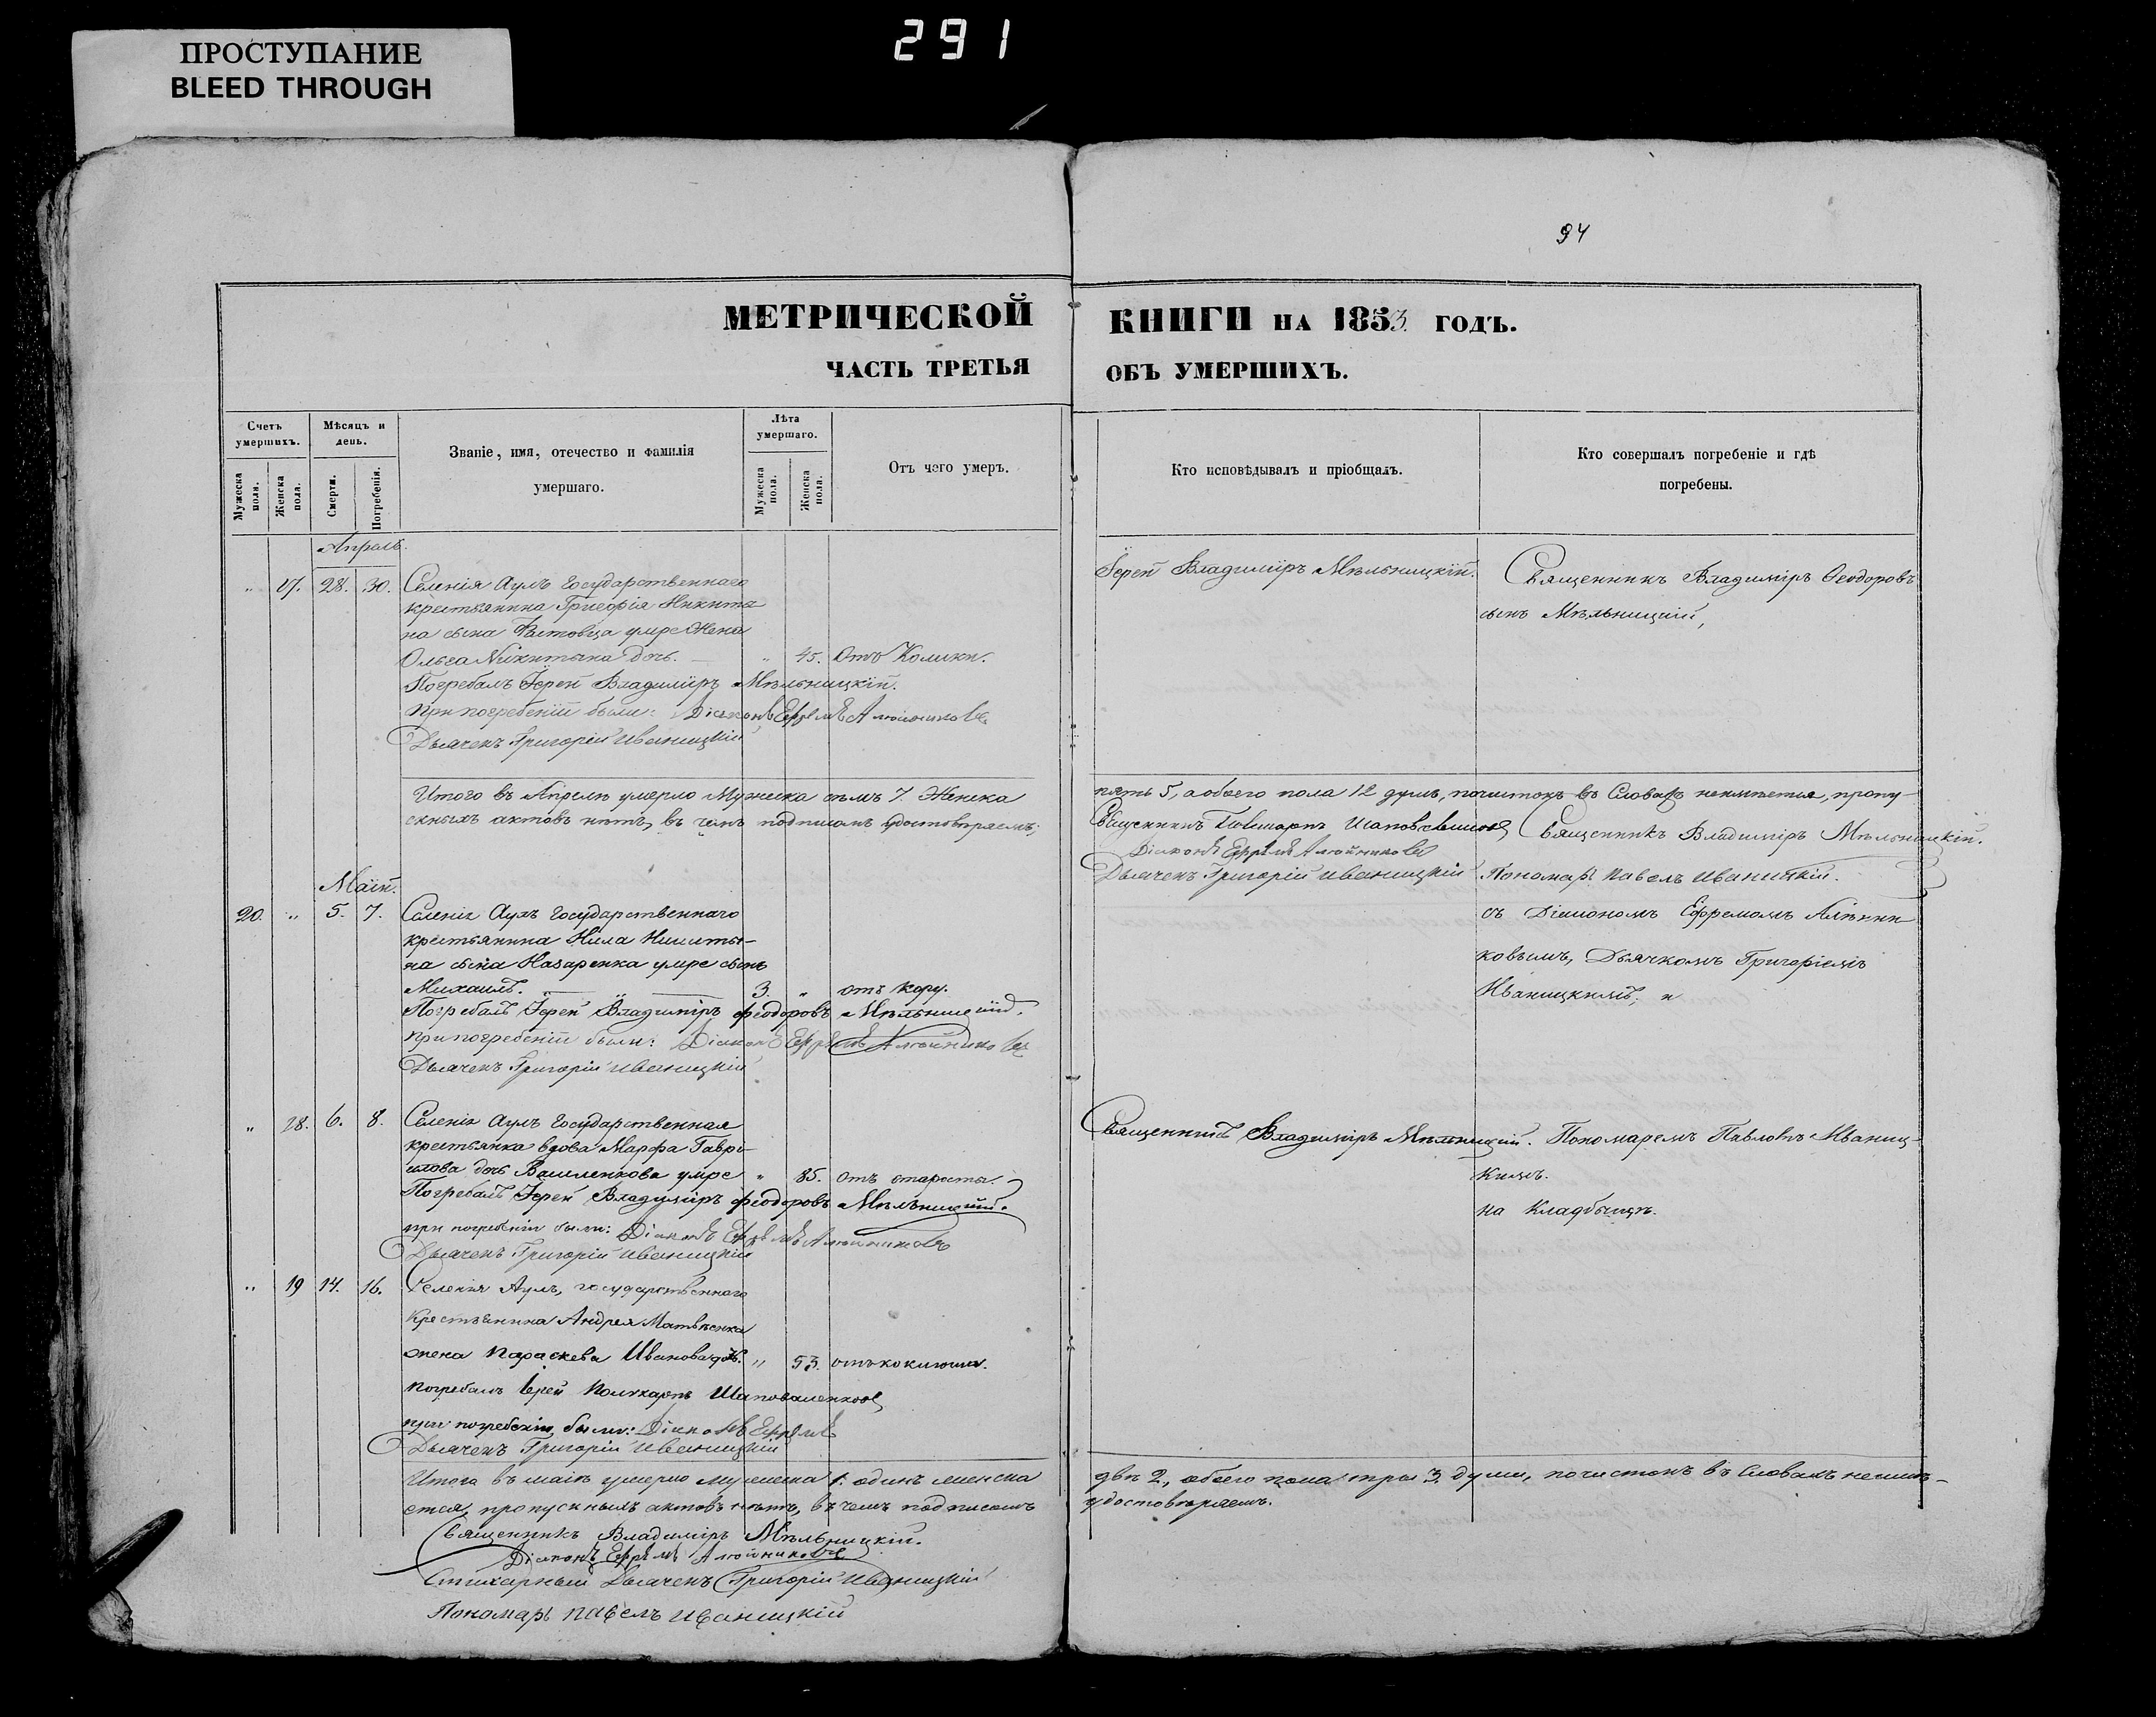 ПРОСТУПАНИЕ
BLEED THROUGH
291
94
МЕТРИЧЕСКОЙ КНИГИ НА 1853 ГОДЪ.
ЧАСТЬ ТРЕТЬЯ ОБЪ УМЕРШИХЪ.
Счетъ умершихъ.
Мужеска пола.
Женска пола.
Мѣсяцъ и день.
Смерти.
Погребенія.
Званіе, имя, отечество и фамилія
умершаго.
Лѣта умершаго.
Мужеска пола.
Женска пола.
Отъ чего умеръ.
Кто исповѣдывалъ и пріобщалъ.
Кто совершалъ погребеніе и гдѣ
погребены.
Апрель.
" 27. 28. 30. Селенія Аулъ Государственнаго
крестьянина Григорія Никити
на сына умре жена
Ольга Никитина дочь. " 45. Отъ Колики.
Погребалъ Іерей Владиміръ Мѣльницкій.
При погребеніи были: Діаконъ Ефремъ
Дьячекъ Григорій Иваницкій
Іерей Владиміръ Мѣльницкій.
Священникъ Владиміръ Ѳеодоровъ
сынъ Мѣльницкій,
Итого въ Апрелѣ умерло Мужеска семъ 7. Женска пять 5, а обоего пола 12 душъ, почистокъ въ Словахъ неимѣется, пропу-
скныхъ актовъ нѣтъ, въ чемъ подписомъ удостовѣряемъ;
Священникъ Поликарпъ Священникъ Владиміръ Мѣльницкій.
Діаконъ Ефремъ
Дьячекъ Григорій Иваницкій Пономарь Павелъ Иваницкій.
Маій.
20. " 5. 7. Селенія Аулъ Государственнаго
крестьянина Нила Никити-
на сына Назаренка умре сынъ
Михаилъ. 3. " отъ кору.
Погребалъ Іерей Владиміръ Феодоровъ Мѣльницкій.
При погребеніи были: Діаконъ Ефремъ
Дьячекъ Григорій Иваницкій
съ Діакономъ Ефремомъ
ковымъ, Дьячкомъ Григоріемъ
Иваницкимъ, и
" 28. 6. 8. Селенія Аулъ Государственная
крестьянка вдова Марфа Гаврі-
илова дочь Василенкова умре " 85. отъ старости.
Погребалъ Іерей Владиміръ Феодоровъ Мѣльницкій.
при погребеніи были: Діаконъ Ефремъ
Дьячекъ Григорій Иваницкій
Священникъ Владиміръ Мѣльницкій. Пономаремъ Павломъ Иваниц-
кимъ.
на Кладбищѣ.
" 19 14. 16. Селенія Аулъ, государственнаго
Крестьянина Андрея Матвѣенка
жена Параскева Иванова дочь. " 53.
погребалъ Іерей Поликарпъ
при погребеніи были: Діаконъ Ефремъ
Дьячекъ Григорій Иваницкій
Итого въ маіѣ умерло мужеска 1. одинъ женска двѣ 2, обоего пола три 3. души, почистокъ въ Словахъ неимѣ-
ется, пропускныхъ актовъ нѣтъ, въ чемъ подписомъ удостовѣряемъ.
Священникъ Владиміръ Мѣльницкій.
Діаконъ Ефремъ
Стихарный Дьячекъ Григорій Иваницкій
Пономарь Павелъ Иваницкій